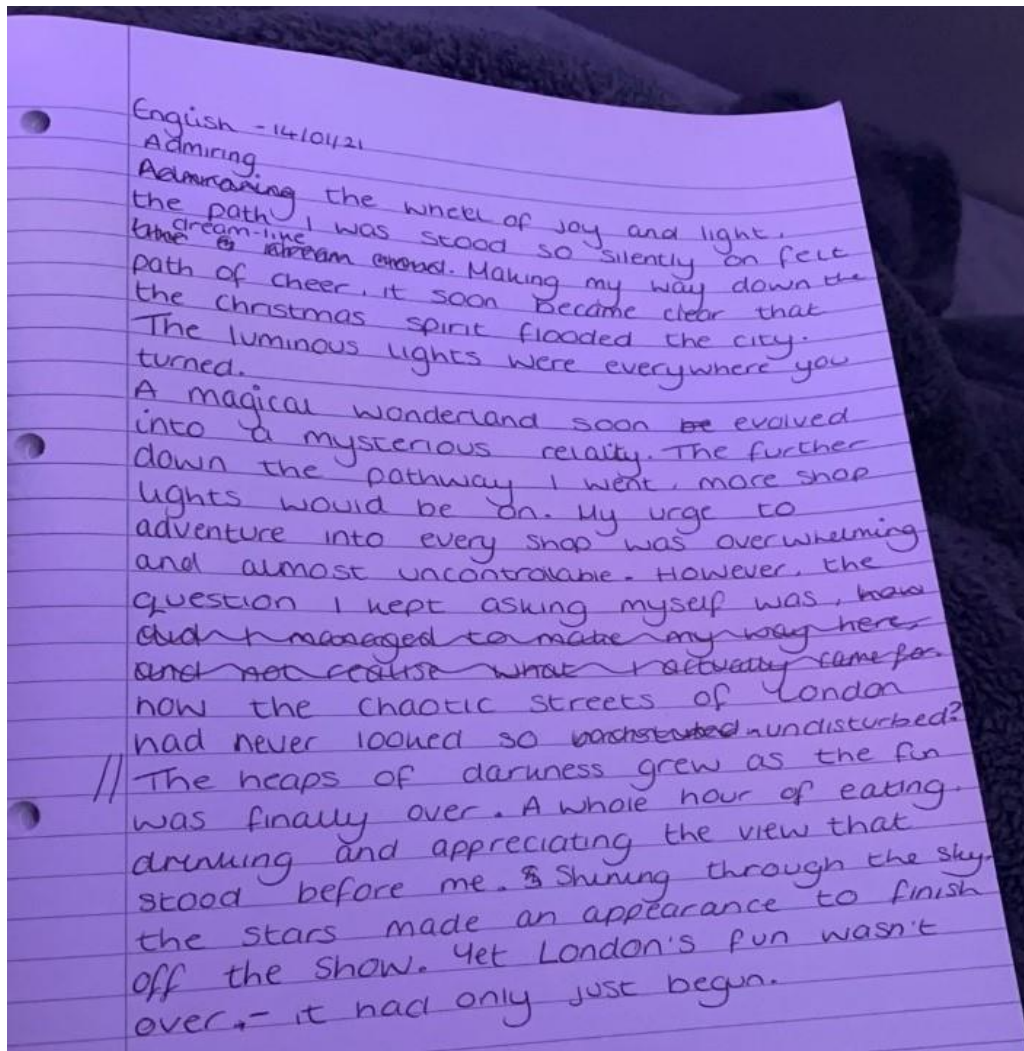 English - 14/01/21
Admiring
the wheel of joy and light.
the path I was stood so silently on felt
dream-like. Making my way down the
path of cheer, it soon became clear that
the christmas spirit flooded the city.
The luminous lights were everywhere you
turned.
A magical wonderland soon be evolved
into a mysterious relaity. The further
down the pathway I went, more shop
lights would be on. My urge to
adventure into every shop was overwhelming
and almost uncontrolable. However, the
question I kept asking myself was, how
did I managed to make my way here,
and not realise what I actually came for.
how the chaotic streets of London
had never looked so undisturbed?
// The heaps of darkness grew as the fun
was finally over. A whole hour of eating,
drinking and appreciating the view that
stood before me. Shining through the sky,
the stars made an appearance to finish
off the show. Yet London's fun wasn't
over - it had only just begun.